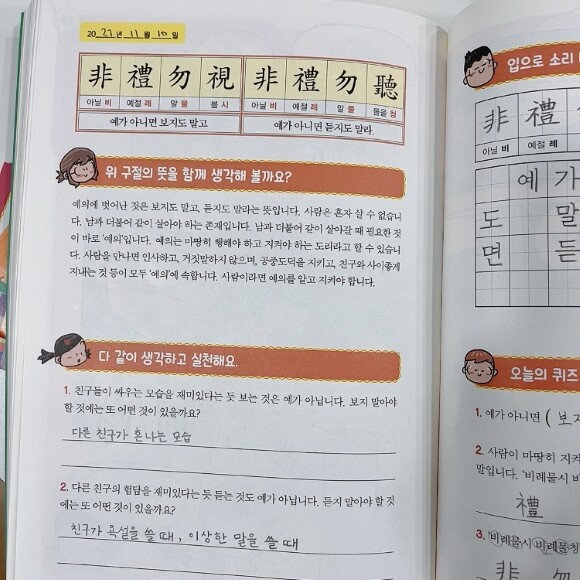 2022년 11월 10일
非 禮 勿 視 非 禮 勿 聽
아닐 비 예절 례 말 물 볼 시 아닐 비 예절 례 말 물 들을 청
예가 아니면 보지도 말고 예가 아니면 듣지도 말라.
위 구절의 뜻을 함께 생각해 볼까요?
예의에 벗어난 것은 보지도 말고, 듣지도 말라는 뜻입니다. 사람은 혼자 살 수 없습니
다. 남과 더불어 같이 살아야 하는 존재입니다. 남과 더불어 같이 살아갈 때 필요한 것
이 바로 '예의'입니다. 예의는 마땅히 행해야 하고 지켜야 하는 도리라고 할 수 있습니
다. 사람을 만나면 인사하고, 거짓말하지 않으며, 공중도덕을 지키고, 친구와 사이좋게
지내는 것 등이 모두 '예의'에 속합니다. 사람이라면 예의를 알고 지켜야 합니다.
다 같이 생각하고 실천해요.
1. 친구들이 싸우는 모습을 재미있다는 듯 보는 것은 예가 아닙니다. 보지 말아야
할 것에는 또 어떤 것이 있을까요?
다른 친구가 혼나는 모습
2. 다른 친구의 험담을 재미있다는 듯 듣는 것도 예가 아닙니다. 듣지 말아야 할 것
에는 또 어떤 것이 있을까요?
친구가 욕설을 쓸 때, 이상한 말을 쓸 때
입으로 소리
非 禮
아닐 비 예절 례
예 가
도 말
면 듣
오늘의 퀴즈
1. 예가 아니면 ( 보지
2. 사람이 마땅히 지켜
말입니다. '비례물시 비
禮
3. 비례물시 비례물청
非 勿